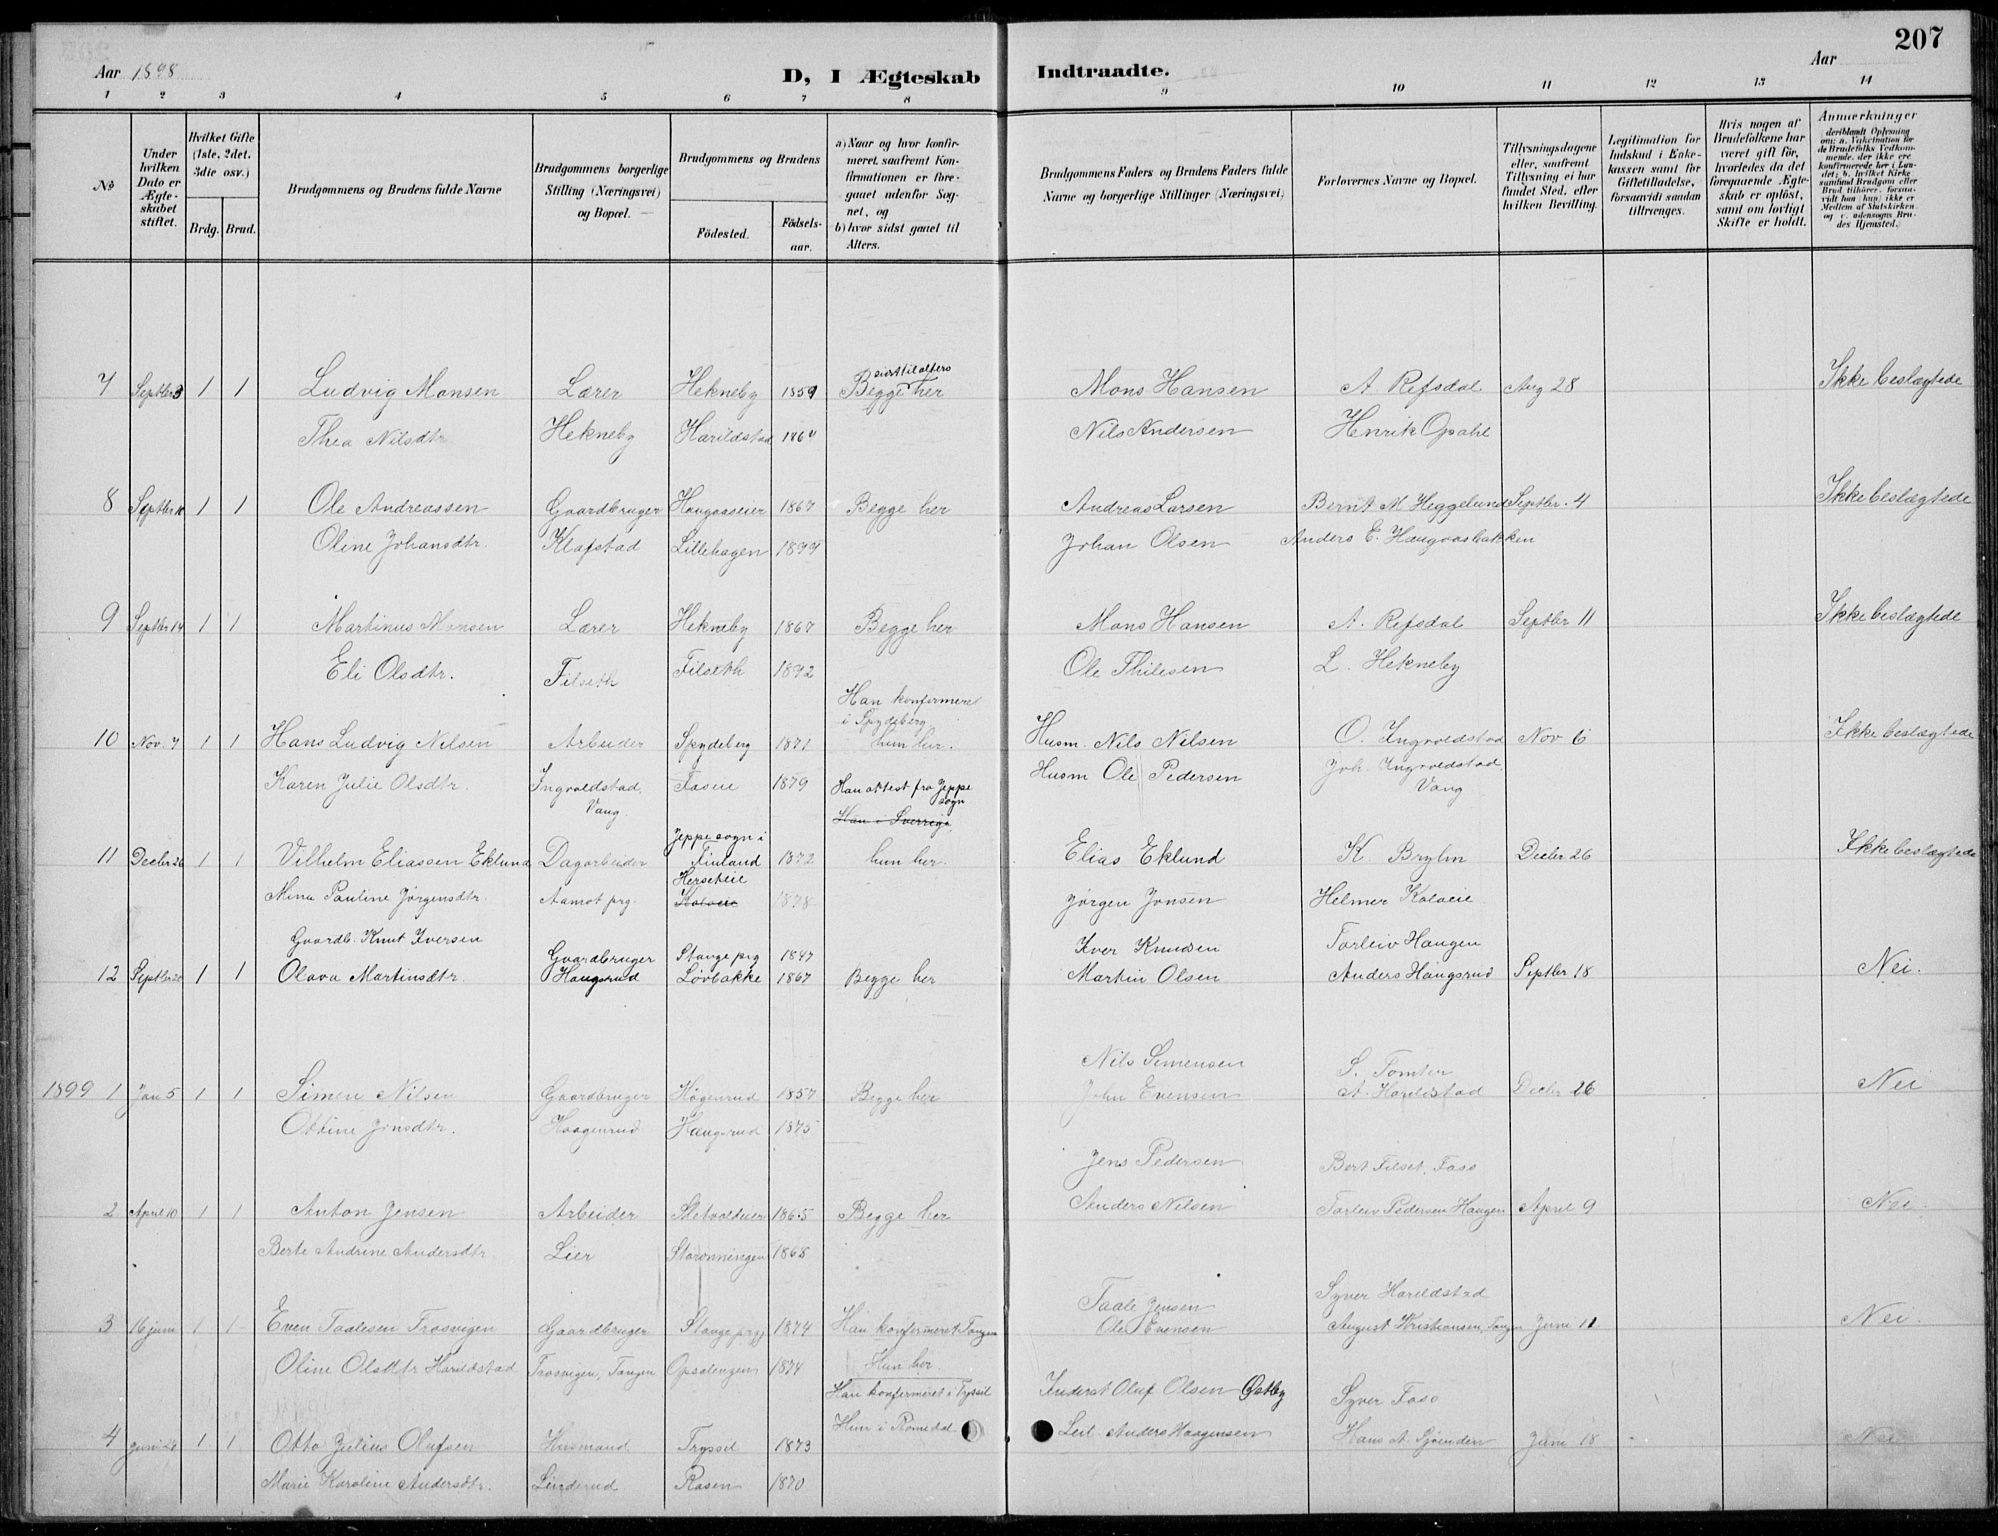 207
Aar 1898
D, I Ægteskab Indtraadte.
Aar
1 2 3 4 5 6 7 8 9 10 11 12 13 14
No
Under hvilken Dato er Ægteskabet stiftet.
Hvilket Gifte (1ste, 2det, 3die osv.)
Brdg. Brud.
Brudgommens og Brudens fulde Navne
Brudgommens borgerlige Stilling (Næringsvei) og Bopæl.
Brudgommens og Brudens
Födested.
Födselsaar.
a) Naar og hvor konfirmeret, saafremt Konfirmationen er foregaaet udenfor Sognet, og
b) hvor sidst gaaet til Alters.
Brudgommens Faders og Brudens Faders fulde Navne og borgerlige Stillinger (Næringsvei)
Forlovernes Navne og Bopæl.
Tillysningsdagene eller, saafremt Tillysning ei har fundet Sted, efter hvilken Bevilling.
Legitimation for Indskud i Enkekassen samt for Giftetilladelse, forsaavidt saadan tiltrænges.
Hvis nogen af Brudefolkene har været gift för, hvorledes da det foregaaende Ægteskab er oplöst, samt om lovligt Skifte er holdt.
Anmærkninger
deriblandt Oplysning om: a. Vakcination for de Brudefolks Vedkommende, der ikke ere konfirmerede her i Landet; b. hvilket Kirkesamfund Brudgom eller Brud tilhörer, forsaavidt han (hun) ikke er Medlem af Statskirken, og c. udensogns Brudes Hjemsted.
7 Septbr 3 1 1 Ludvig Monsen Lærer Hekneby 1859 Begge her Mons Hansen A. Refsdal Aug 28 Ikke beslægtede
sidst til alters
Thea Nilsdtr Hekneby Harildstad Nils Andersen Henrik Opahl
8 Septbr 10 1 1 Ole Andreassen Gaardbruger Haugaaseier 1867 Begge her Andreas Larsen Bernt M Heggelund Septbr. 4 Ikke beslægtede
Oline Johansdtr. Klafstad Lillehagen Johan Olsen Anders E. Haugaasbakken
9 Septbr 14 1 1 Martinus Monsen Lærer Hekneby 1867 Begge her Mons Hansen A. Refsdal Septbr 11 Ikke beslægtede
Eli Olsdtr. Filseth Filseth Ole Thilesen L. Hekneby
Han konfermeret
i Spydeberg
10 Nov. 7 1 1 Hans Ludvig Nilsen Arbeider Spydeberg 1871 hun her. Husm. Nils Nilsen O. Ingvoldstad Nov 6 Ikke beslægtede
Karen Julie Olsdtr. Ingvoldstad, Vang. 1879 Husm Ole Pedersen Joh. Ingvoldstad, Vang
Han attest fra Jeppe sogn
Han i Sverrige.
Jeppe sogn i
11 Decbr 26 1 1 Vilhelm Eliassen Eklund Dagarbeider Finland 1872 hun her. Elias Eklund K. Bryhn Decbr 26 Ikke beslægtede
Herseteie
Mina Pauline Jørgensdtr. Aamot prg. Kolveie 1878 Jørgen Jonsen Helmer Kolveie.
Gaardb. Knut Iversen Gaardbruger Stange prg 1847 Iver Knudsen Torleiv Haugen
12 Septbr 20 1 1 Olava Martinsdtr. Haugsrud Løvbakke 1867 Begge her Martin Olsen Anders Haugsrud Septbr 18 Nei.
Nils Simensen S. Tomter
1899 1 Jan 5 1 1 Simen Nilsen Gaardbruger Høgenrud 1857 Begge her John Evensen A. Harildstad Decbr 26 Nei
Ottine Jonsdtr. Haagenrud Haugsrud 1875
Jens Pedersen Bert Filset, Faso
2 April 10 1 1 Anton Jensen Arbeider 1865 Begge her Anders Nilsen Torleiv Pedersen Haugen April 9 Nei.
Berte Andrine Andersdtr. Lier Storenningen 1868
Taale Jensen Syver Harildstad
3 16 juni 1 1 Even Taalesen Trosvigen Gaardbruger Stange prg 1874 Han konfermeret Tangen Ole Evensen August Kristiansen, Tangen Juni 11 Nei.
Oline Olsdtr Harildstad Trosvigen, Tangen Opsalengen 1874 Hun her.
Han konfermeret i Tryssil Inderst Oluf Olsen Østby Syver Faso
Hun i Romedal Leil. Anders Haagensen
4 juni 24 1 1 Otto Julius Olufsen Husmand Tryssil 1873 Juni 18 Nei
Marie Karoline Andersdtr. Linderud Rasen 1870